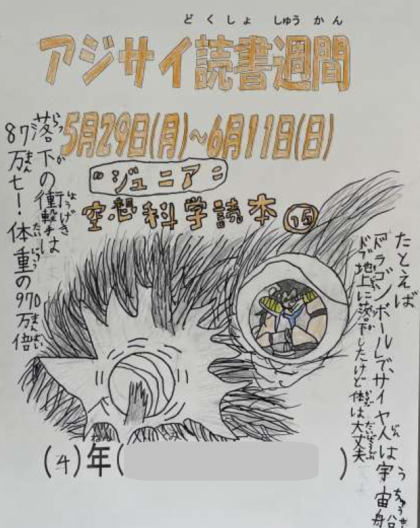 どくしょ しゅうかん
アジサイ読書週間
5月29日(月)~6月11日(日)
"ジュニア"
空想科学読本
たとえば
ドラゴンボールで、サイヤ人は宇宙船
うちゅうせん
地上に落下したけど体は大丈夫
だいじょうぶ
らっか しょうげき
落下の衝撃は
まん たいじゅう まんばい
87万t!体重の970万倍
(4)年( )